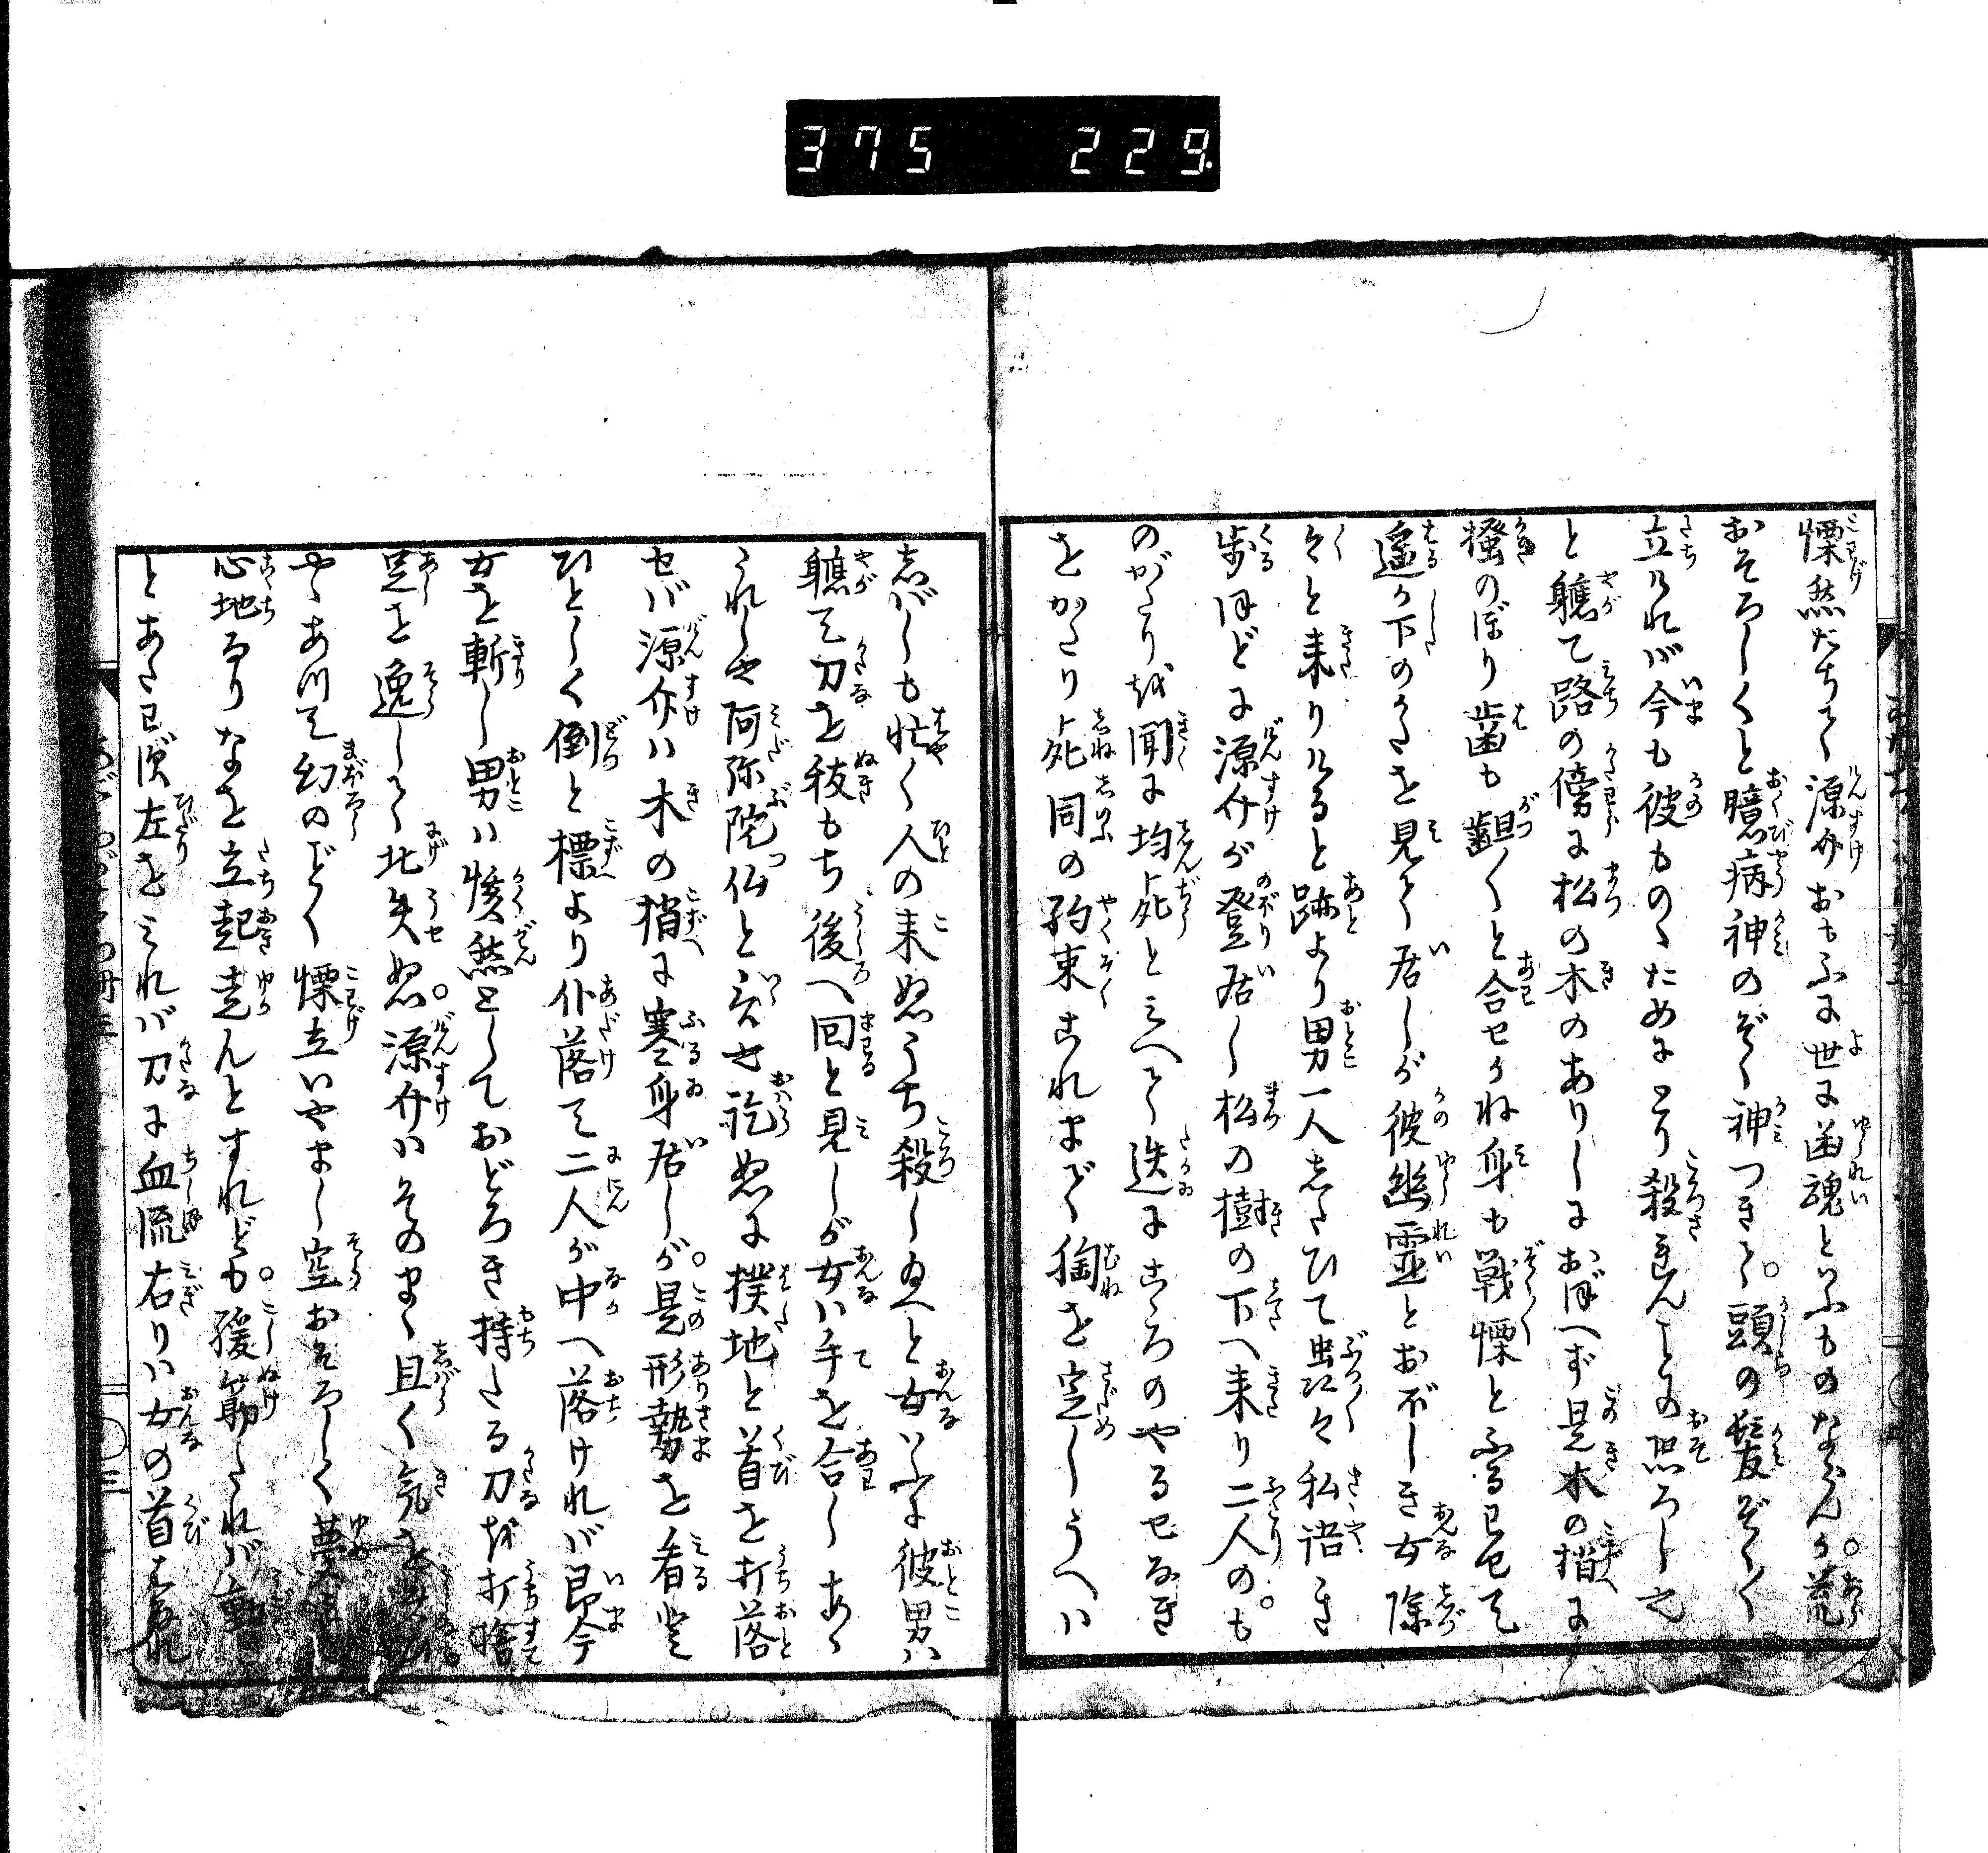 375 229
慄然だちて源介おもふに世に幽魂といふものならんか。荒
おそろしくと臆病神のぞく神つきて。頭の髪ぞく〱
立けれバ今も彼ものゝために殺されんことの恐ろしさ
と軈て路の傍に松の木のありしにおぼへず是木の梢に
掻のぼり歯も齟〱と合せかね身も戦慄とふるはせて
遥か下のかたを見て居しが彼幽霊とおぼしき女除
々と来りけると跡より男一人したひて出々私語き
歩ほどに源介が登居し松の樹の下へ来り二人のも
のがたりを聞に均死とみへて迭にこゝろのやるせなき
をかたり死同の約束これまで胸を定しうへハ
しバしも忙く人の来ぬうち殺し給へと女いふに彼男ハ
軈て刀を抜もち後へ回と見しが女ハ手を合しあゝ
うれしや阿弥陀仏と言も訖ぬに撲地と首を打落
せバ源介ハ木の梢に寒身居しが。是形勢を看と
ひとしく倒と標より仆落て二人が中へ落けれバ即今
女を斬し男ハ愕然としておどろき持たる刀を打捨
足を逸して北失ぬ。源介ハそのまゝ且く気を
やゝあつて幻のごとく慄立いやまし空おそろしく夢
心地なりなを立起走んとすれども。緩筋たれバ
とあたはず左をみれバ刀に血流右りハ女の首